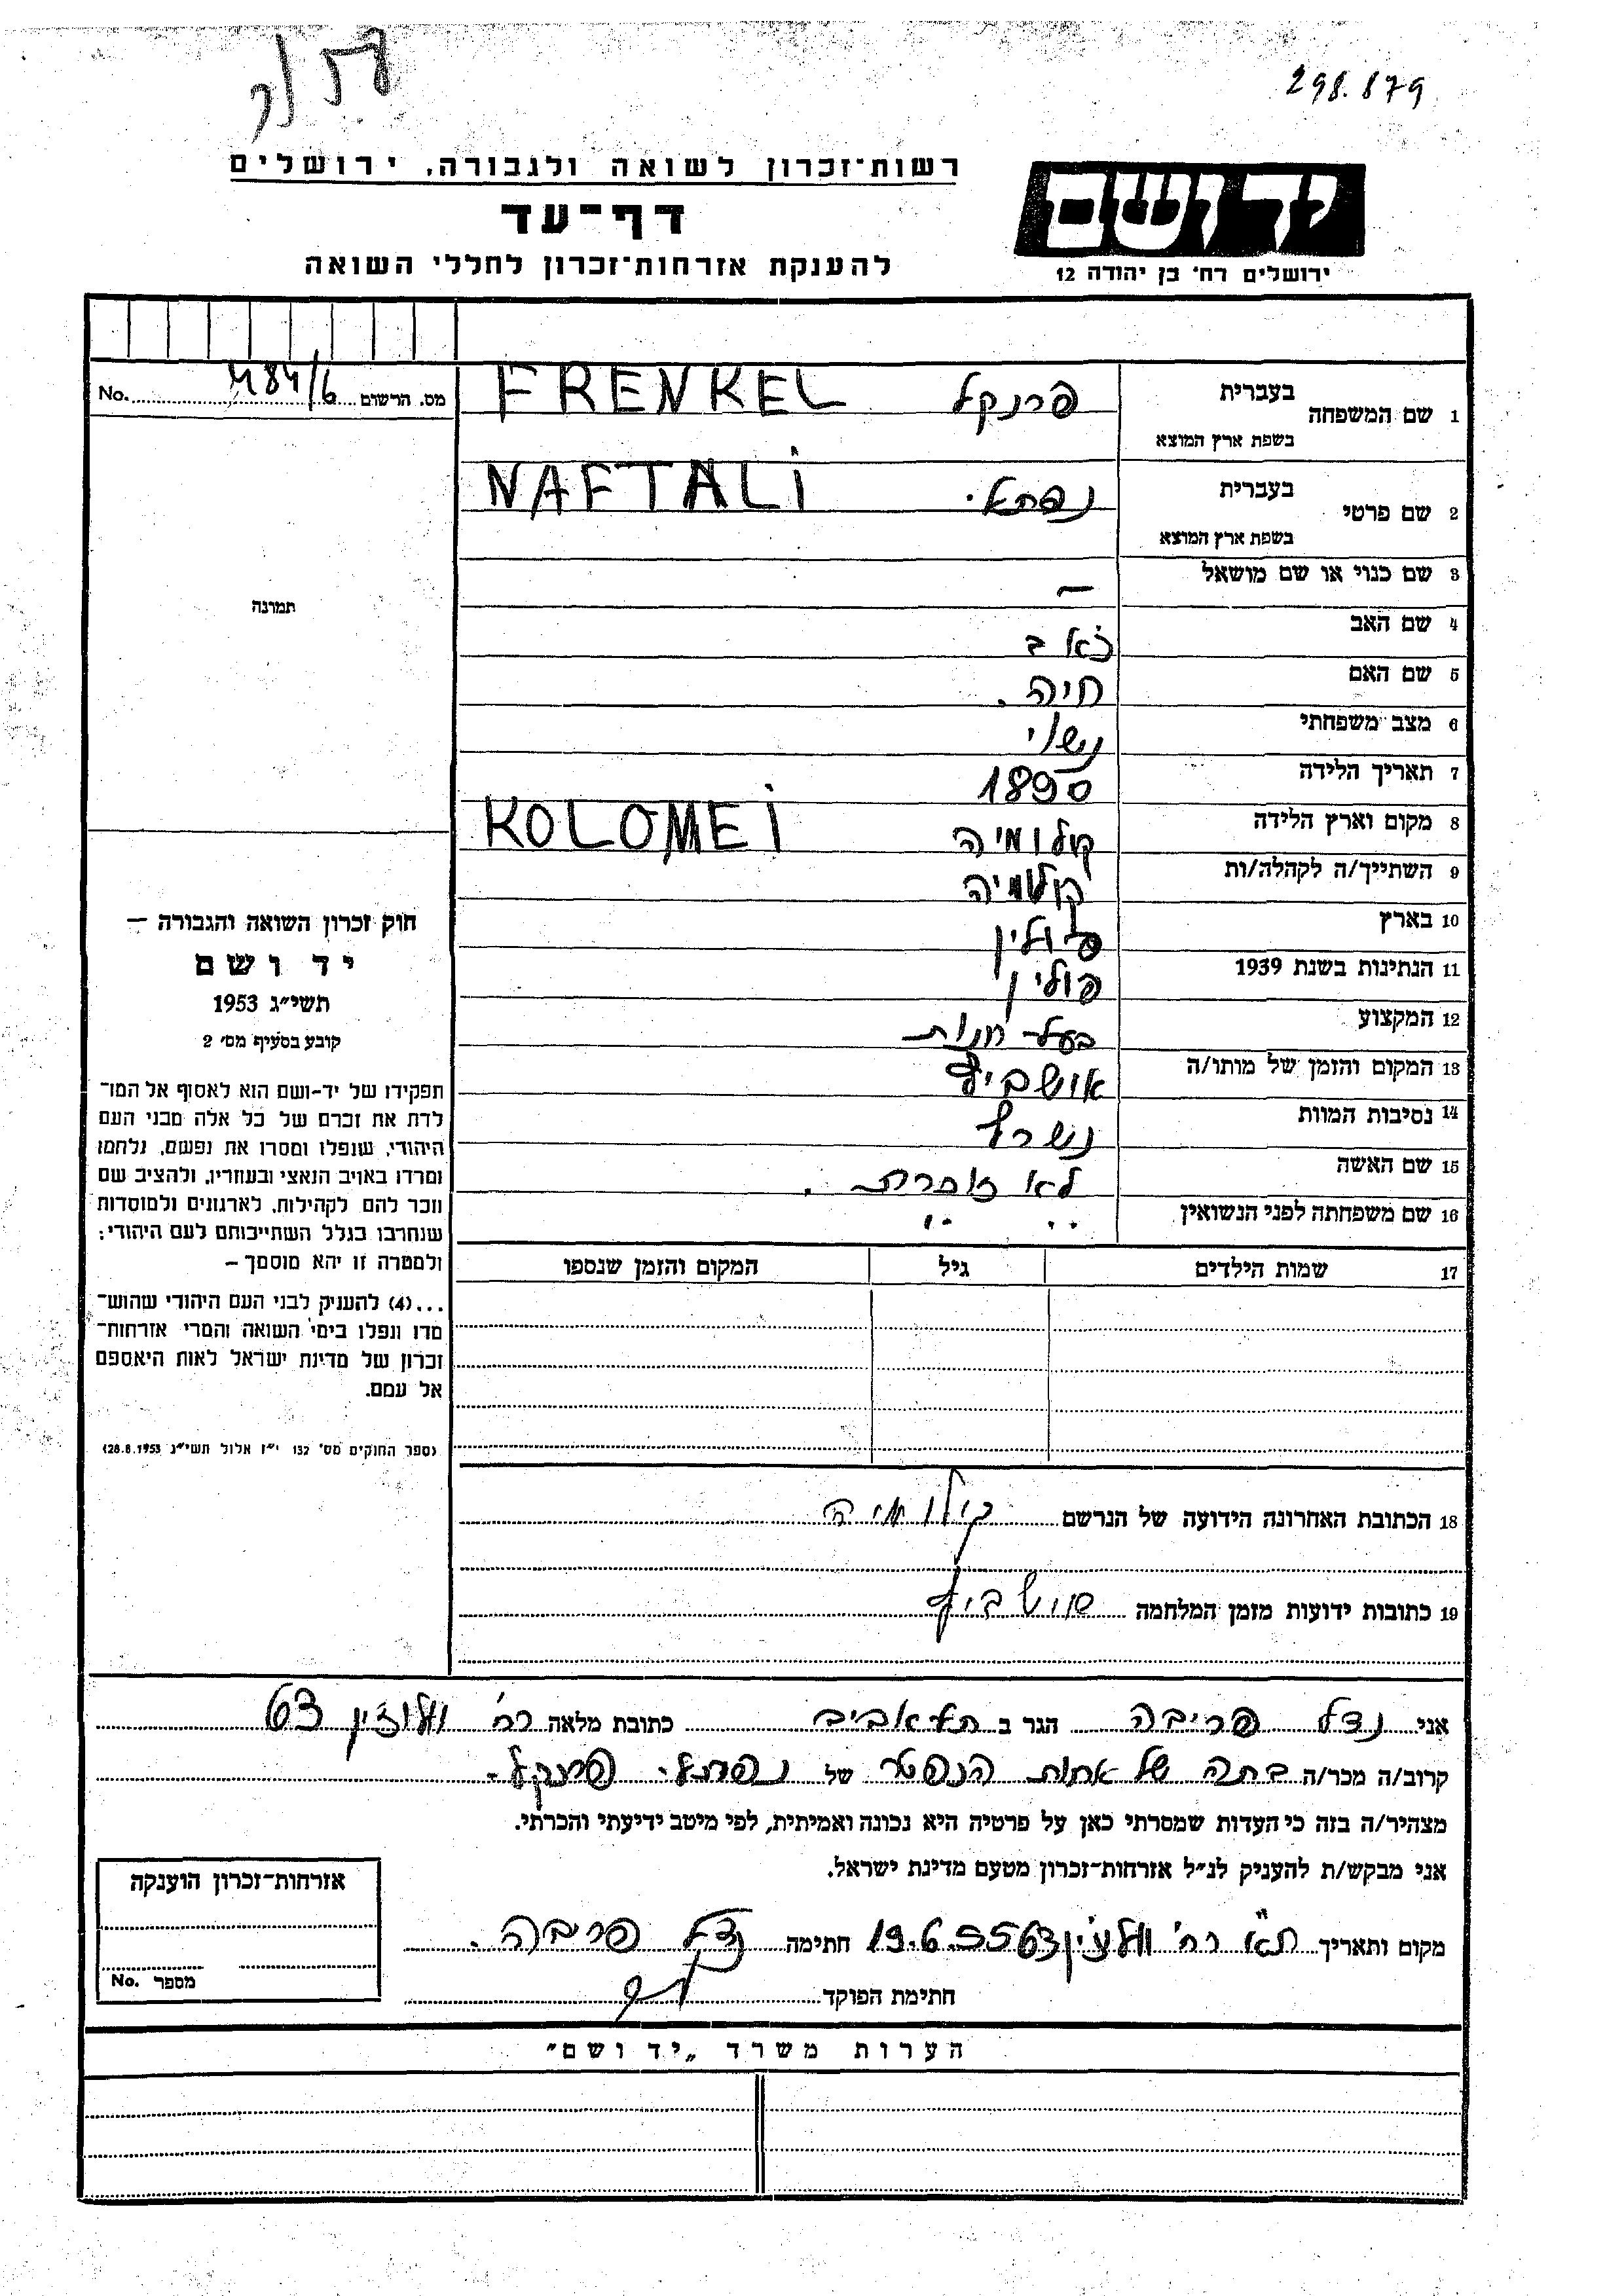 298.879
רשות־זכרון לשואה ולגבורה, ירושלים
יד ושם
דף־עד
ירושלים רח' בן יהודה 12
להענקת אזרחות־זכרון לחללי השואה
No. מס. הרשום
1 שם המשפחה בעברית פרנקל FRENKEL
בשפת ארץ המוצא
2 שם פרטי בעברית נפתלי NAFTALI
בשפת ארץ המוצא
3 שם כנוי או שם מושאל —
תמונה
4 שם האב
5 שם האם חיה.
6 מצב משפחתי נשוי
7 תאריך הלידה 1890
8 מקום וארץ הלידה קולומיה KOLOMEI
9 השתייך/ה לקהלה/ות קולומיה
10 בארץ פולין
11 הנתינות בשנת 1939 פולין
12 המקצוע בעל חנות
13 המקום והזמן של מותו/ה אושביץ
14 נסיבות המוות נשרף
15 שם האשה לא זוכרת.
16 שם משפחתה לפני הנשואין " "
17 שמות הילדים גיל המקום והזמן שנספו
חוק זכרון השואה והגבורה —
יד ושם
תשי״ג 1953
קובע בסעיף מס' 2
תפקידו של יד-ושם הוא לאסוף אל המו־
לדת את זכרם של כל אלה מבני העם
היהודי, שנפלו ומסרו את נפשם, נלחמו
ומרדו באויב הנאצי ובעוזריו, ולהציב שם
וזכר להם לקהילות, לארגונים ולמוסדות
שנחרבו בגלל השתייכותם לעם היהודי;
ולמטרה זו יהא מוסמך —
...(4) להעניק לבני העם היהודי שהוש־
מדו ונפלו בימי השואה והמרי אזרחות־
זכרון של מדינת ישראל לאות היאספם
אל עמם.
(ספר החוקים מס' 132 י״ז אלול תשי״ג 28.8.1953)
18 הכתובת האחרונה הידועה של הנרשם קולומיה
19 כתובות ידועות מזמן המלחמה
אני נדל פריבה הגר ב תל אביב כתובת מלאה רח' וולוזין 63
קרוב/ה מכר/ה בתה של אחות הנפטר של נפתלי פרנקל.
מצהיר/ה בזה כי העדות שמסרתי כאן על פרטיה היא נכונה ואמיתית, לפי מיטב ידיעתי והכרתי.
אני מבקש/ת להעניק לנ״ל אזרחות־זכרון מטעם מדינת ישראל.
אזרחות־זכרון הוענקה
No. מספר
מקום ותאריך ת״א רח' וולוז'ין 63 19.6.55 חתימה נדל פריבה.
חתימת הפוקד
הערות משרד „יד ושם״